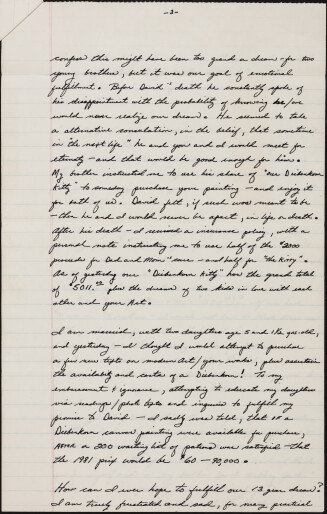 -3-
confess this might have been too grand a dream - for two
young brothers, but it was our goal of emotional
fulfillment. Before David's death he constantly spoke of
his disappointment with the probability of knowing he/we
would never realize our dream. He seemed to take
a alternative consolation, in the belief, that sometime
in "the next life" he and you and I would meet for
eternity - and that would be good enough for him.
My brother instructed me to use his share of "our Diebenkorn
Kitty" to someday purchase your painting - and enjoy it
for both of us. David felt, if such was meant to be
- then he and I would never be apart, in life or death.
After his death - I received a insurance policy, with a
personal note instructing me to use half of the $2000
proceeds for Dad and Moms' care - and half for "the Kitty".
As of yesterday our "Diebenkorn Kitty" has the grand total
of $5011. plus the dream of two kids in love with each
other and your Art.
I am married, with two daughters age 5 and 1½ yrs old,
and yesterday - I thought I would attempt to purchase
a few new texts on modern Art / your work, plus ascertain
the availability and costs of a Diebenkorn! To my
embarrassment & ignorance, attempting to educate my daughters
via readings / photo texts and inquiries to fulfill my
promise to David - I sadly was told, that IF a
Diebenkorn canvas painting were available for purchase,
AFTER a 200 waiting list of patrons were satisfied - that
the 1981 price would be $60 - 90,000.
How can I ever hope to fulfill our 13 year dream?
I am truly frustrated and sad, for many practical